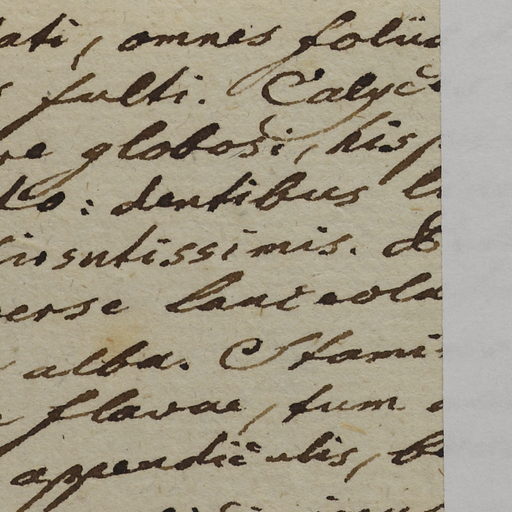 ati, omnes folii
fulti. Calyc
re globosi, his
to: dentibus l
entissimis.
erse lanceola
alba. Stami
flavae, tum
appendiculis, b